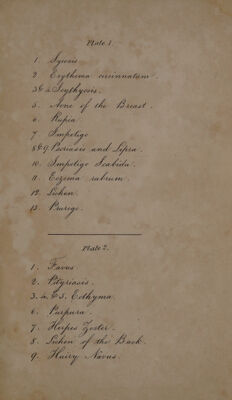 Plate 1.
1. Sycosis.
2. Erythema circinnatum.
3 & 4. Icythyosis.
5. Acne of the Breast.
6. Rupia.
7 Impetigo
8 & 9. Psoriasis and Lepra.
10. Impetigo Scabida.
11. Eczema rubrum.
12. Lichen.
13. Prurigo.
Plate 2.
1. Favus
2. Pityriasis.
3. 4. & 5. Ecthyma.
6. Purpura.
7. Herpes Zoster.
8. Lichen of the Back.
9. Hairy Nævus.